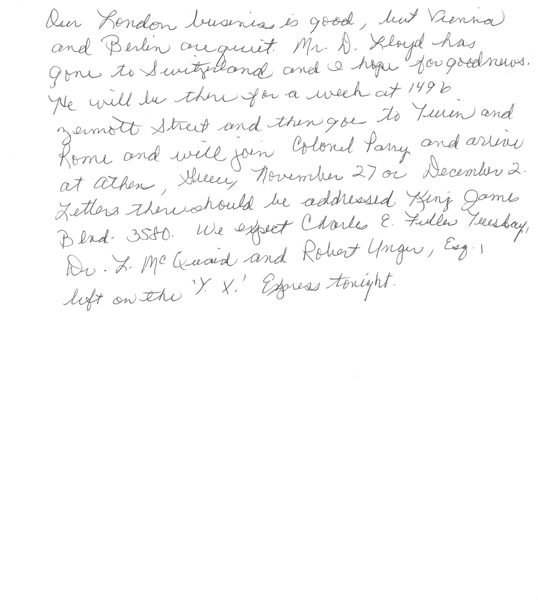 Our London business is good, but Vienna
and Berlin are quiet. Mr. D. Lloyd has
gone to Switzerland and I hope for good news.
He will be there for a week at 1496
Zermott Street and then goes to Turin and
Rome and will join Colonel Parry and arrive
at Athen, Greece, November 27 or December 2.
Letters there should be addressed King James
Blvd. 3580. We expect Charles E. Fuller Tuesday.
Dr. L. McQuaid and Robert Unger, Esq.,
left on the 'Y. X.' Express tonight.